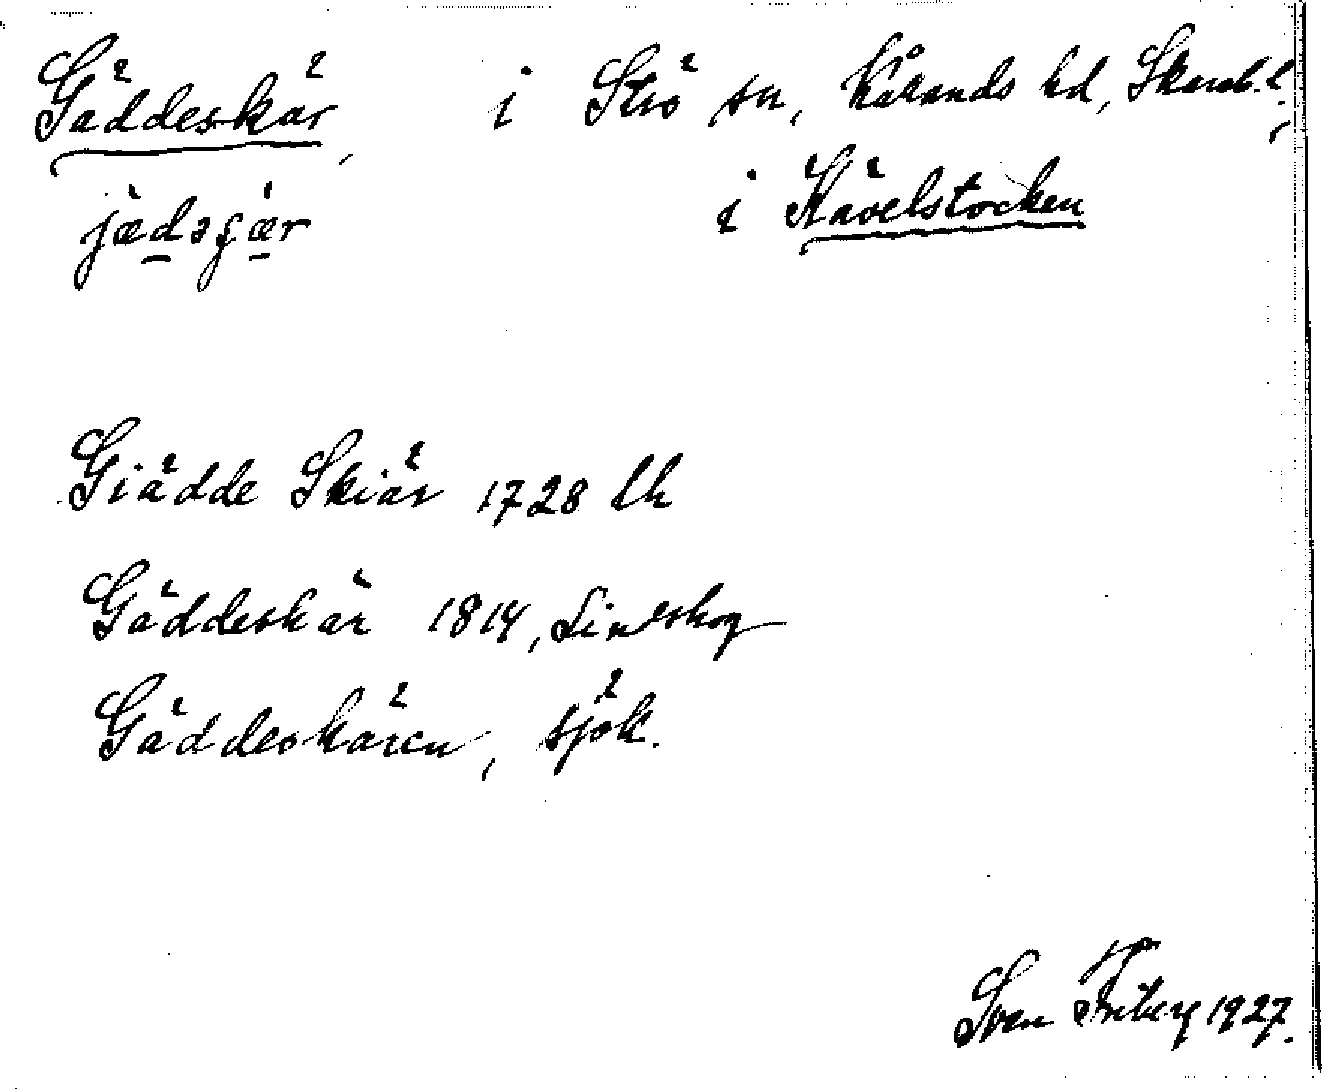 Gäddeskär, i Strö sn, Kålands hd, Skarab. l.
jædəɟær i Kävelstocken
Giädde Skiär 1728 lk
Gäddeskär 1814, Lindskog
Gäddeskären, sjök.
Sven Friberg 1927.